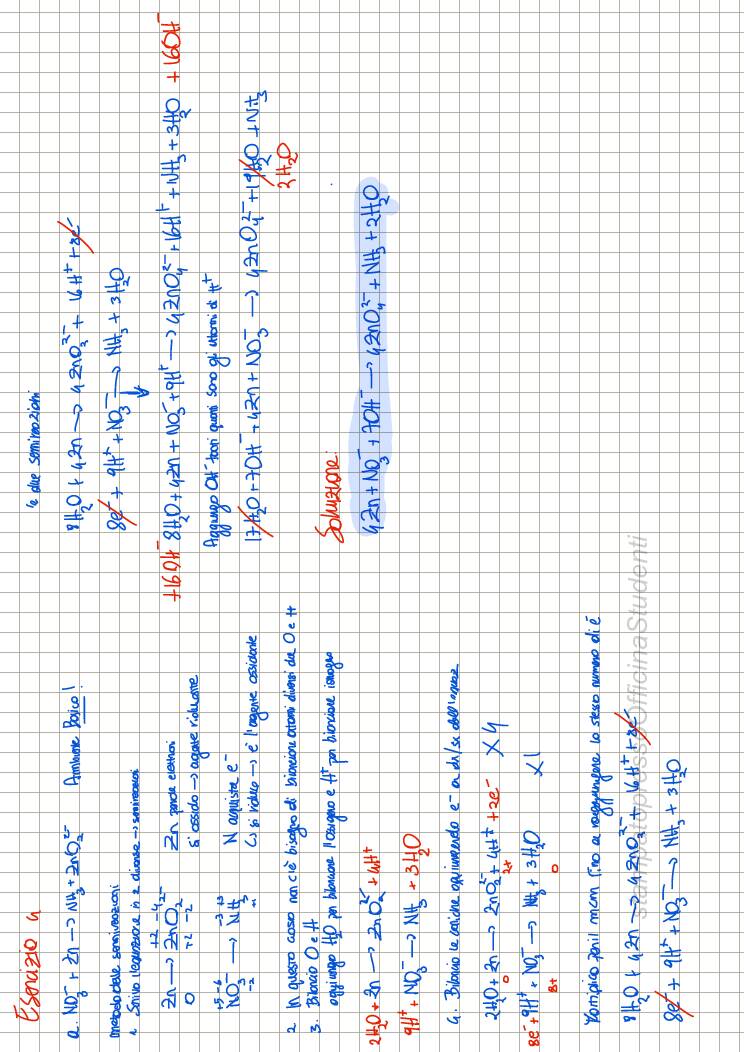 Esercizio 4
a. NO₃⁻ + Zn → NH₃ + ZnO₂²⁻ Ambiente Basico!
metodo delle semireazioni
1. Scrivo l'equazione in 2 diverse → semireazioni
+2 -4
Zn → ZnO₂²⁻ Zn perde elettroni
0 +2 -2 si ossida → agente riducente
+5 -6 -3 +3
NO₃⁻ → NH₃ N acquista e⁻
-2 +1 ↳ si riduce → è l'agente ossidante
2. In questo caso non c'è bisogno di bilanciare atomi diversi da O e H
3. Bilancio O e H
aggiungo H₂O per bilanciare l'ossigeno e H⁺ per bilanciare idrogeno
2H₂O + Zn → ZnO₂²⁻ + 4H⁺
9H⁺ + NO₃⁻ → NH₃ + 3H₂O
4. Bilancio le cariche aggiungendo e⁻ a dx/sx
2H₂O + Zn → ZnO₂²⁻ + 4H⁺ + 2e⁻ ×4
0 2+
8e⁻ + 9H⁺ + NO₃⁻ → NH₃ + 3H₂O ×1
8+ 0
Moltiplico per il mcm fino a raggiungere lo stesso numero di e⁻
8H₂O + 4Zn → 4ZnO₂²⁻ + 16H⁺ + 8e⁻
8e⁻ + 9H⁺ + NO₃⁻ → NH₃ + 3H₂O
le due semireazioni
8H₂O + 4Zn → 4ZnO₂²⁻ + 16H⁺ + 8e⁻
8e⁻ + 9H⁺ + NO₃⁻ → NH₃ + 3H₂O
+16OH⁻ 8H₂O + 4Zn + NO₃⁻ + 9H⁺ → 4ZnO₄²⁻ + 16H⁺ + NH₃ + 3H₂O + 16OH⁻
Aggiungo OH⁻ tanti quanti sono gli atomi di H⁺
17H₂O + 7OH⁻ + 4Zn + NO₃⁻ → 4ZnO₄²⁻ + 19H₂O + NH₃
2H₂O
Soluzione:
4Zn + NO₃⁻ + 7OH⁻ → 4ZnO₄²⁻ + NH₃ + 2H₂O
stampatopressoOfficinaStudenti